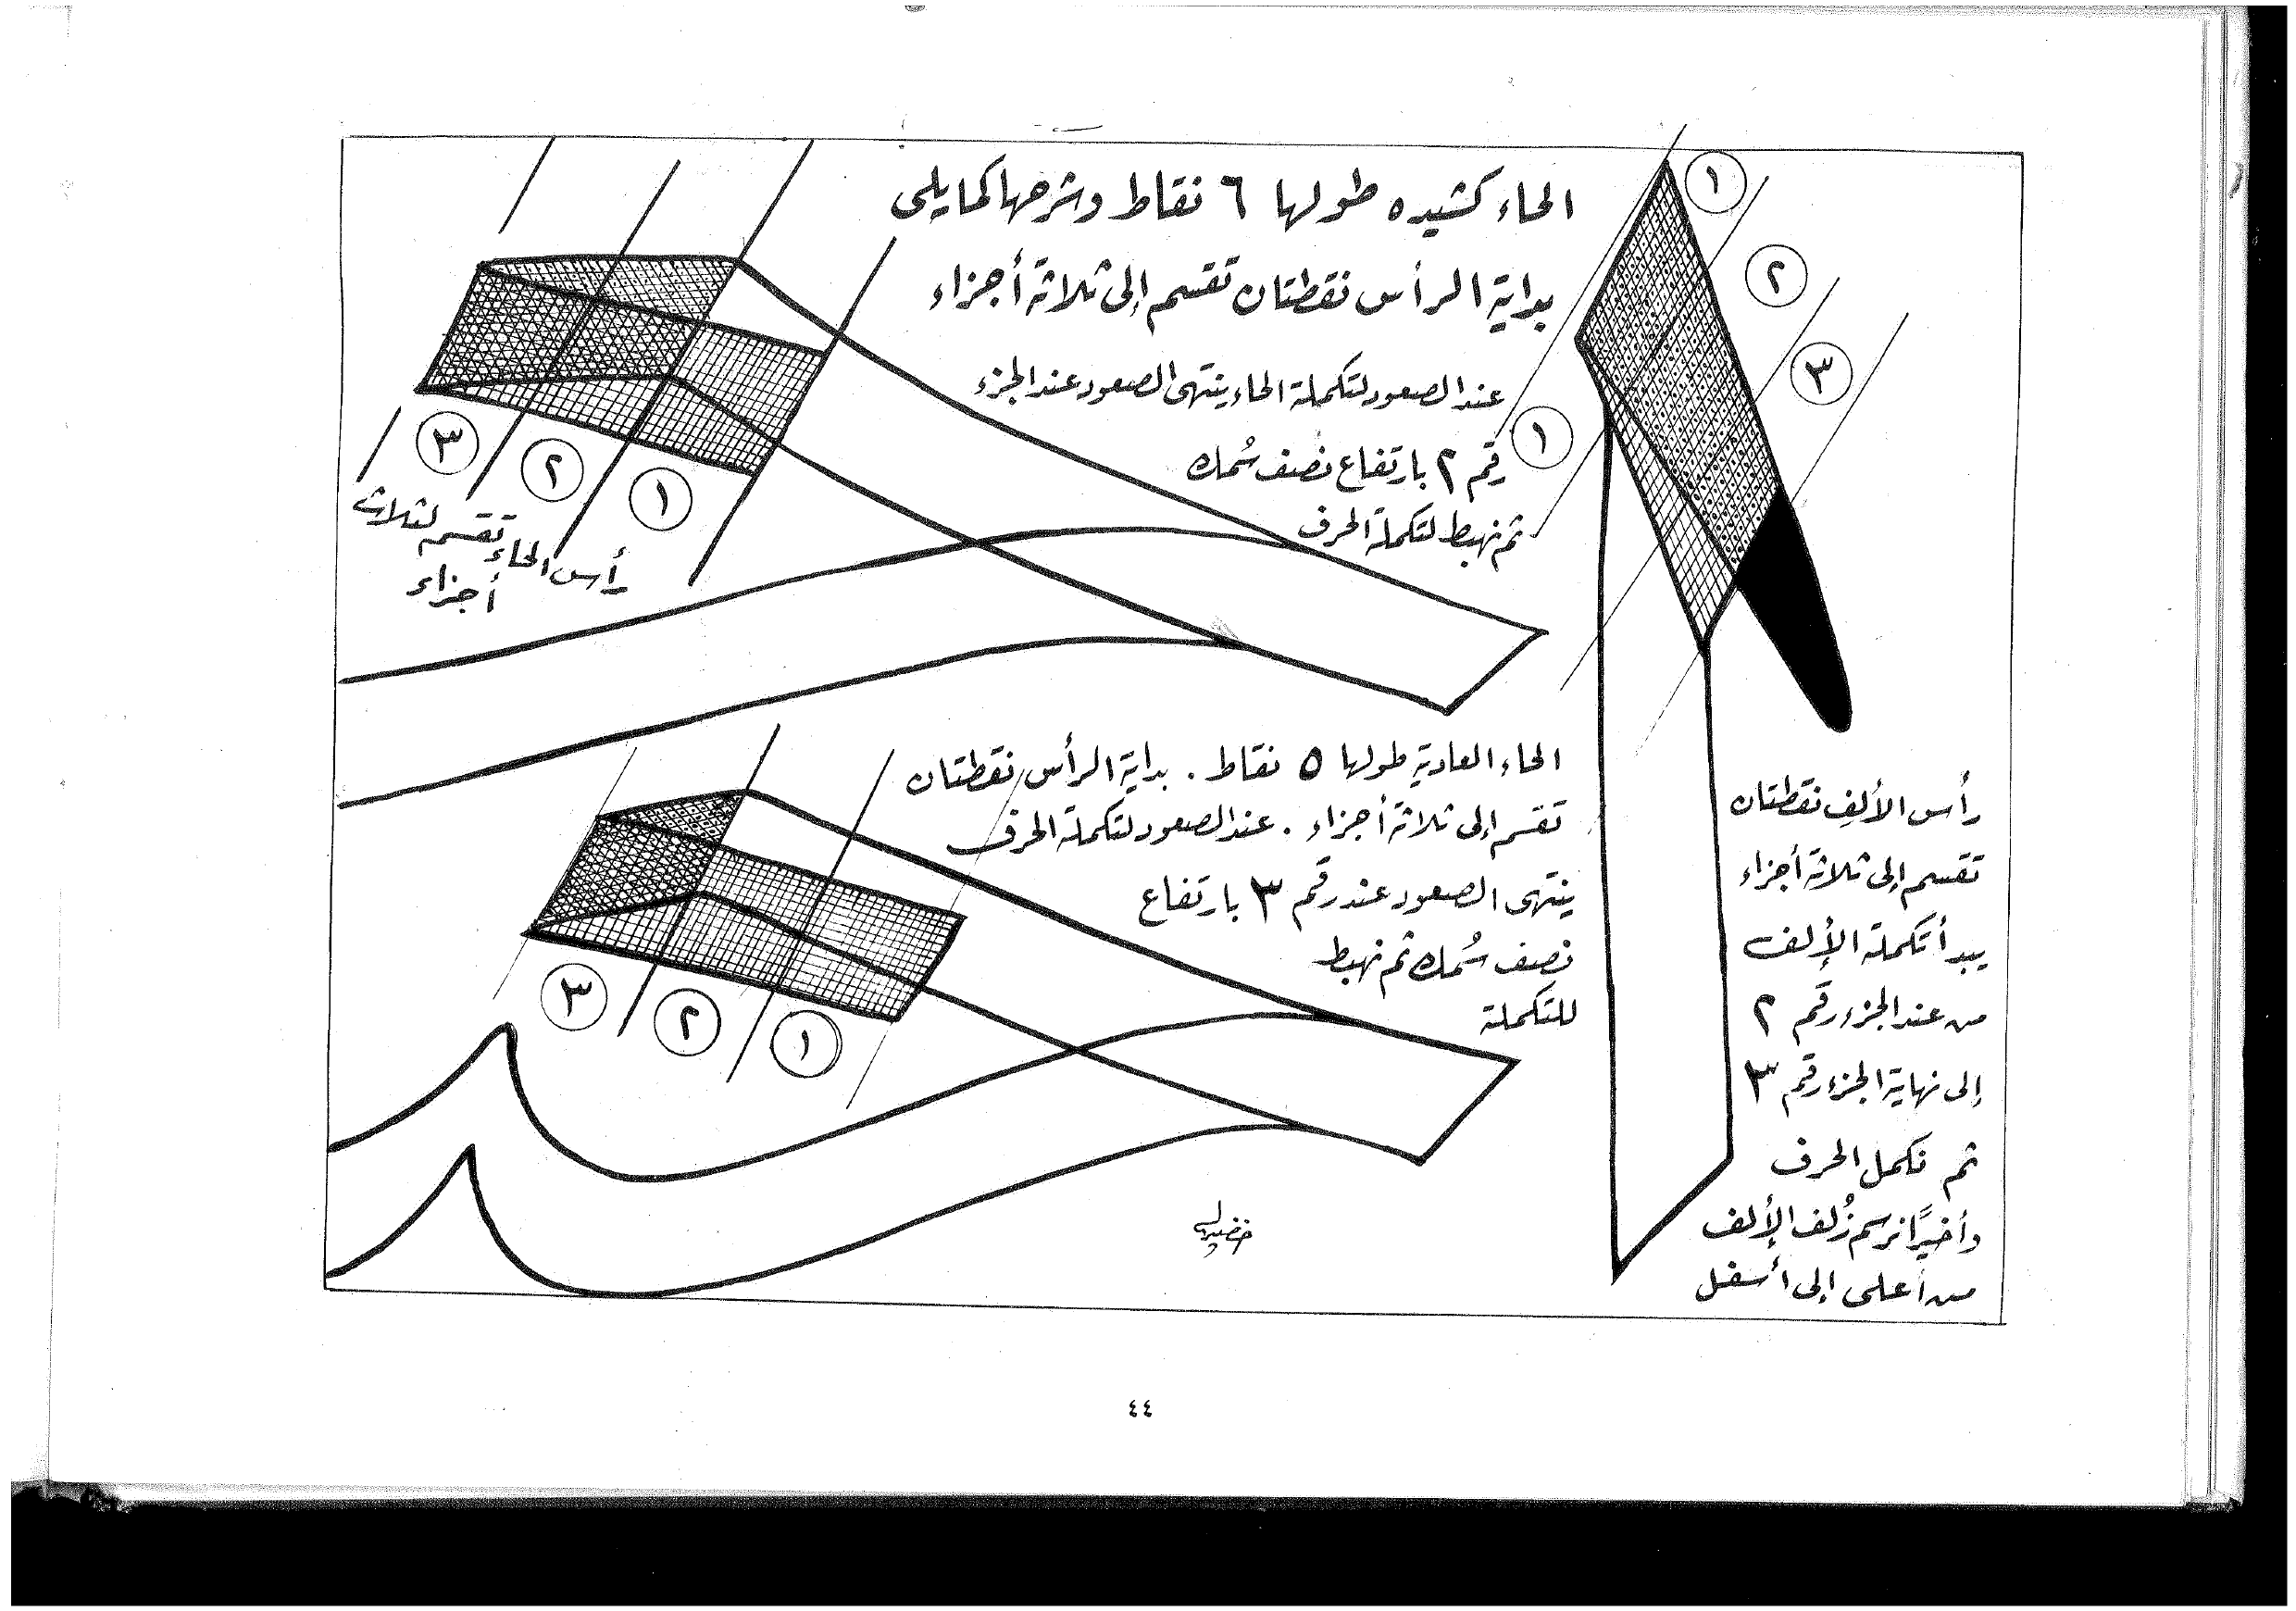 الحاء كشيده طولها ٦ نقاط وشرحها كمايلى
بداية الرأس نقطتان تقسم إلى ثلاثة أجزاء
عند الصعود لتكملة الحاء ينتهى الصعود عند الجزء
رقم ٢ بارتفاع نصف سُمك
ثم نهبط لتكملة الحرف
١
٢
٣
١
٣
٢
١
رأس الحاء تقسم لثلاث
أجزاء
الحاء العادية طولها ٥ نقاط . بداية الرأس نقطتان
تقسم إلى ثلاثة أجزاء . عند الصعود لتكملة الحرف
ينتهى الصعود عند رقم ٣ بارتفاع
نصف سُمك ثم نهبط
للتكملة
٣
٢
١
رأس الألف نقطتان
تقسم إلى ثلاثة أجزاء
يبدأ تكملة الألف
من عند الجزء رقم ٢
إلى نهاية الجزء رقم ٣
ثم نكمل الحرف
وأخيرًا نرسم زُلف الألف
من أعلى إلى أسفل
خضير
٤٤